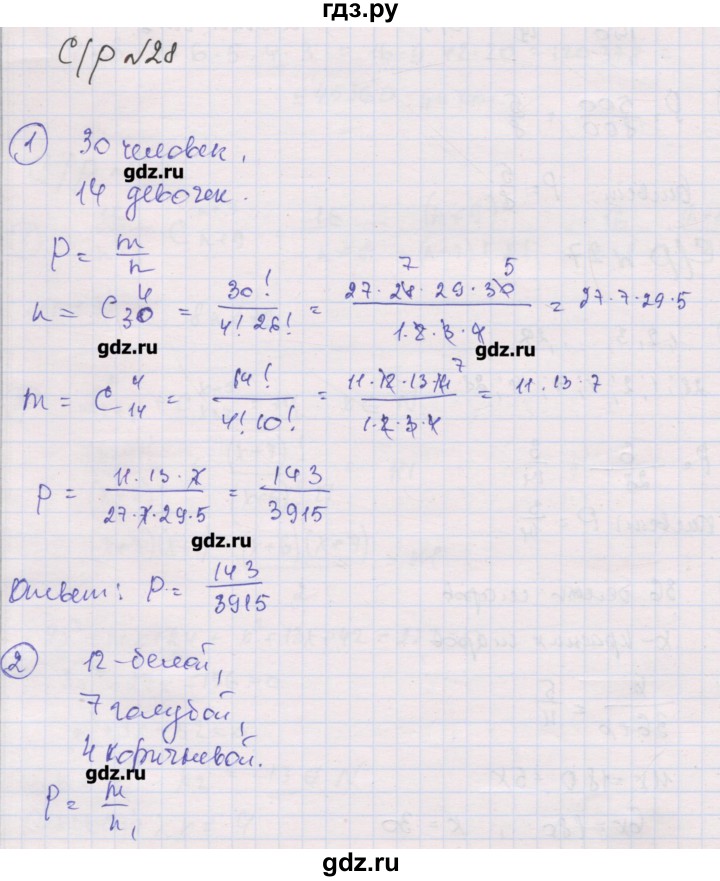 гдз.ру
С/р №28
1 30 человек,
gdz.ru
14 девочек.
P = m/n
n = C₃₀⁴ = 30!/(4! 26!) = (27·28·29·30)/(1·2·3·4) = 27·7·29·5
7 5
gdz.ru gdz.ru
m = C₁₄⁴ = 14!/(4! 10!) = (11·12·13·14)/(1·2·3·4) = 11·13·7
7
P = (11·13·7)/(27·7·29·5) = 143/3915
gdz.ru
Ответ: P = 143/3915
2 12 - белой,
7 голубой,
4 коричневой.
gdz.ru
P = m/n,
gdz.ru